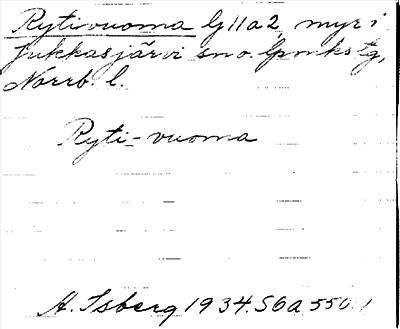 Rytivuoma Lg 11 a 2, myr i
Jukkasjärvi sn o. lpmks tg,
Norrb. l.
Ryti-vuoma
A. Isberg 1934. S6a 550.